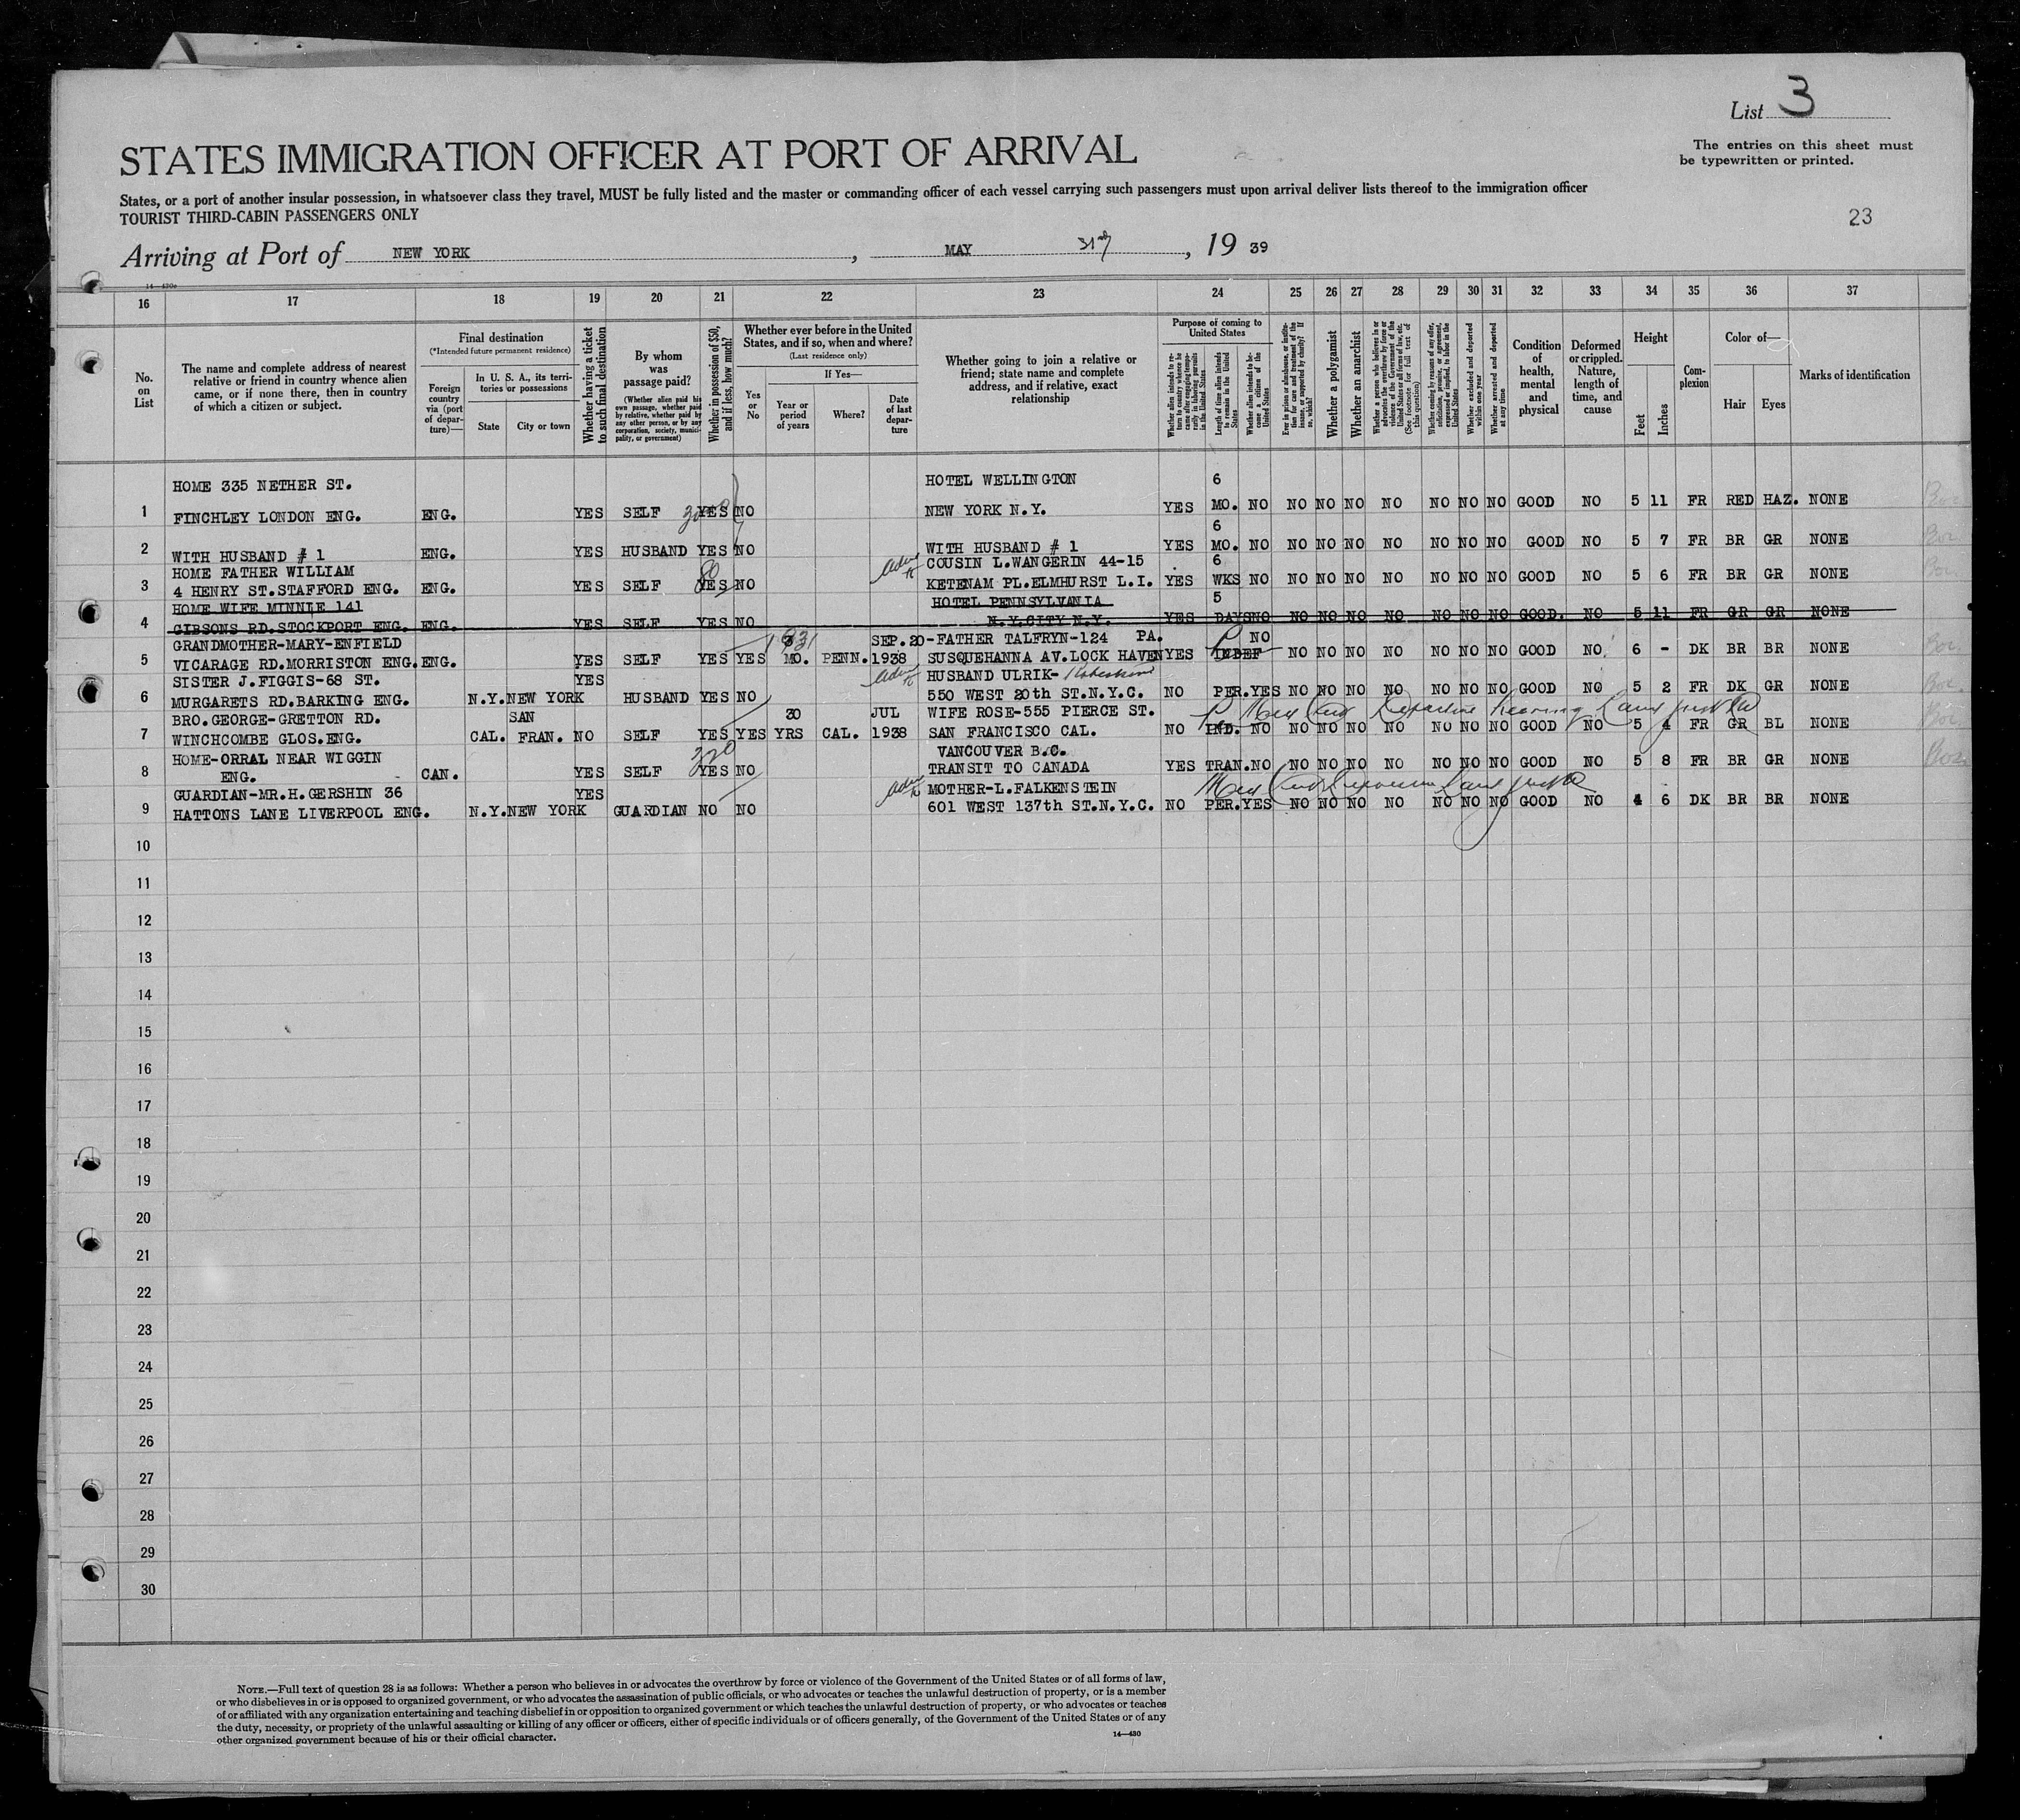 List 3
The entries on this sheet must
be typewritten or printed.
STATES IMMIGRATION OFFICER AT PORT OF ARRIVAL
States, or a port of another insular possession, in whatsoever class they travel, MUST be fully listed and the master or commanding officer of each vessel carrying such passengers must upon arrival deliver lists thereof to the immigration officer
TOURIST THIRD-CABIN PASSENGERS ONLY
23
Arriving at Port of NEW YORK, MAY 31, 19 39
16 17 18 19 20 21 22 23 24 25 26 27 28 29 30 31 32 33 34 35 36 37
No. on List
The name and complete address of nearest relative or friend in country whence alien came, or if none there, then in country of which a citizen or subject.
Final destination
(*Intended future permanent residence)
Foreign country via (port of departure)—
In U. S. A., its territories or possessions
State
City or town
Whether having a ticket to such final destination
By whom was passage paid?
(Whether alien paid his own passage, whether paid by relative, whether paid by any other person, or by any corporation, society, municipality, or government)
Whether in possession of $50, and if less, how much?
Whether ever before in the United States, and if so, when and where?
(Last residence only)
Yes or No
If Yes—
Year or period of years
Where?
Date of last departure
Whether going to join a relative or friend; state name and complete address, and if relative, exact relationship
Purpose of coming to United States
Length of time alien intends to remain in the United States
Whether alien intends to become a citizen of the United States
Whether a polygamist
Whether an anarchist
Whether excluded and deported within one year
Whether arrested and deported at any time
Condition of health, mental and physical
Deformed or crippled. Nature, length of time, and cause
Height
Feet
Inches
Complexion
Color of—
Hair
Eyes
Marks of identification
HOME 335 NETHER ST. HOTEL WELLINGTON 6
1 FINCHLEY LONDON ENG. ENG. YES SELF YES NO NEW YORK N.Y. YES MO. NO NO NO NO NO NO NO NO GOOD NO 5 11 FR RED HAZ. NONE
6
2 WITH HUSBAND # 1 ENG. YES HUSBAND YES NO WITH HUSBAND # 1 YES MO. NO NO NO NO NO NO NO NO GOOD NO 5 7 FR BR GR NONE
HOME FATHER WILLIAM COUSIN L.WANGERIN 44-15 6
3 4 HENRY ST.STAFFORD ENG. ENG. YES SELF YES NO KETENAM PL.ELMHURST L.I. YES WKS NO NO NO NO NO NO NO NO GOOD NO 5 6 FR BR GR NONE
HOME WIFE MINNIE 141 HOTEL PENNSYLVANIA 5
4 GIBSONS RD.STOCKPORT ENG. ENG. YES SELF YES NO N.Y.CITY N.Y. YES DAYS NO NO NO NO NO NO NO NO GOOD. NO 5 11 FR GR GR NONE
GRANDMOTHER-MARY-ENFIELD SEP.20-FATHER TALFRYN-124 PA. NO
5 VICARAGE RD.MORRISTON ENG. ENG. YES SELF YES YES MO. PENN. 1938 SUSQUEHANNA AV.LOCK HAVEN YES INDEF NO NO NO NO NO NO NO GOOD NO 6 - DK BR BR NONE
SISTER J.FIGGIS-68 ST. YES HUSBAND ULRIK-
6 MURGARETS RD.BARKING ENG. N.Y. NEW YORK HUSBAND YES NO 550 WEST 20th ST.N.Y.C. NO PER. YES NO NO NO NO NO NO NO GOOD NO 5 2 FR DK GR NONE
BRO.GEORGE-GRETTON RD. SAN 30 JUL WIFE ROSE-555 PIERCE ST.
7 WINCHCOMBE GLOS.ENG. CAL. FRAN. NO SELF YES YES YRS CAL. 1938 SAN FRANCISCO CAL. NO IND. NO NO NO NO NO NO NO NO GOOD NO 5 4 FR GR BL NONE
HOME-ORRAL NEAR WIGGIN 320 VANCOUVER B.C.
8 ENG. CAN. YES SELF YES NO TRANSIT TO CANADA YES TRAN. NO NO NO NO NO NO NO NO GOOD NO 5 8 FR BR GR NONE
GUARDIAN-MR.H.GERSHIN 36 YES MOTHER-L.FALKENSTEIN
9 HATTONS LANE LIVERPOOL ENG. N.Y. NEW YORK GUARDIAN NO NO 601 WEST 137th ST.N.Y.C. NO PER. YES NO NO NO NO NO NO NO GOOD NO 4 6 DK BR BR NONE
10
11
12
13
14
15
16
17
18
19
20
21
22
23
24
25
26
27
28
29
30
NOTE.—Full text of question 28 is as follows: Whether a person who believes in or advocates the overthrow by force or violence of the Government of the United States or of all forms of law,
or who disbelieves in or is opposed to organized government, or who advocates the assassination of public officials, or who advocates or teaches the unlawful destruction of property, or is a member
of or affiliated with any organization entertaining and teaching disbelief in or opposition to organized government or which teaches the unlawful destruction of property, or who advocates or teaches
the duty, necessity, or propriety of the unlawful assaulting or killing of any officer or officers, either of specific individuals or of officers generally, of the Government of the United States or of any
other organized government because of his or their official character.
14—430